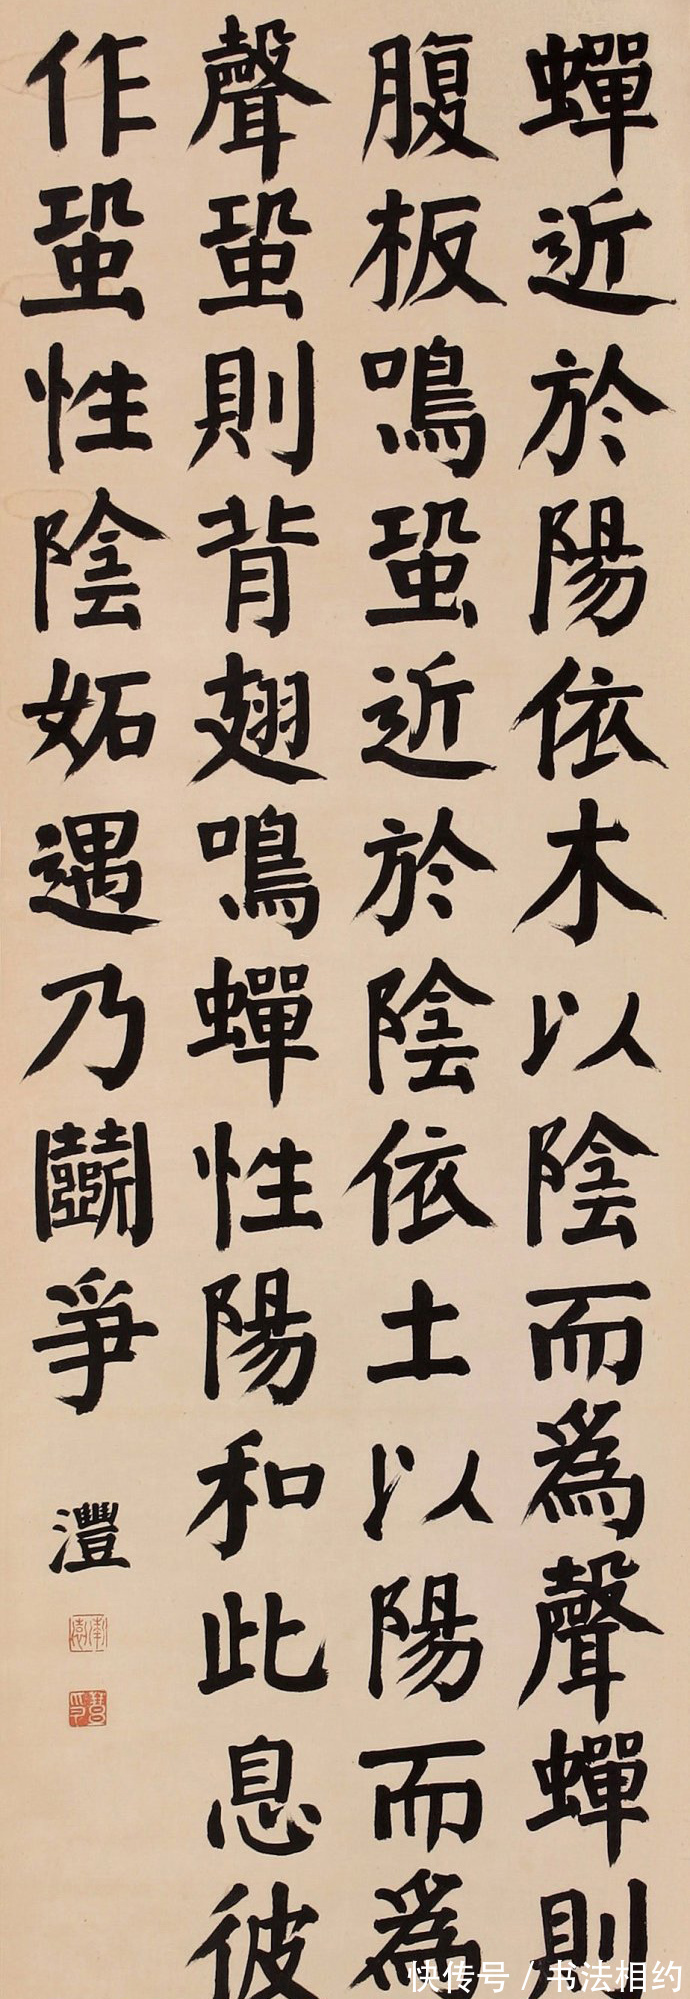 蟬近於陽依木以陰而為聲蟬則
腹板鳴蛩近於陰依土以陽而為
聲蛩則背翅鳴蟬性陽和此息彼
作蛩性陰妬遇乃鬭爭
灃
快传号/书法相约